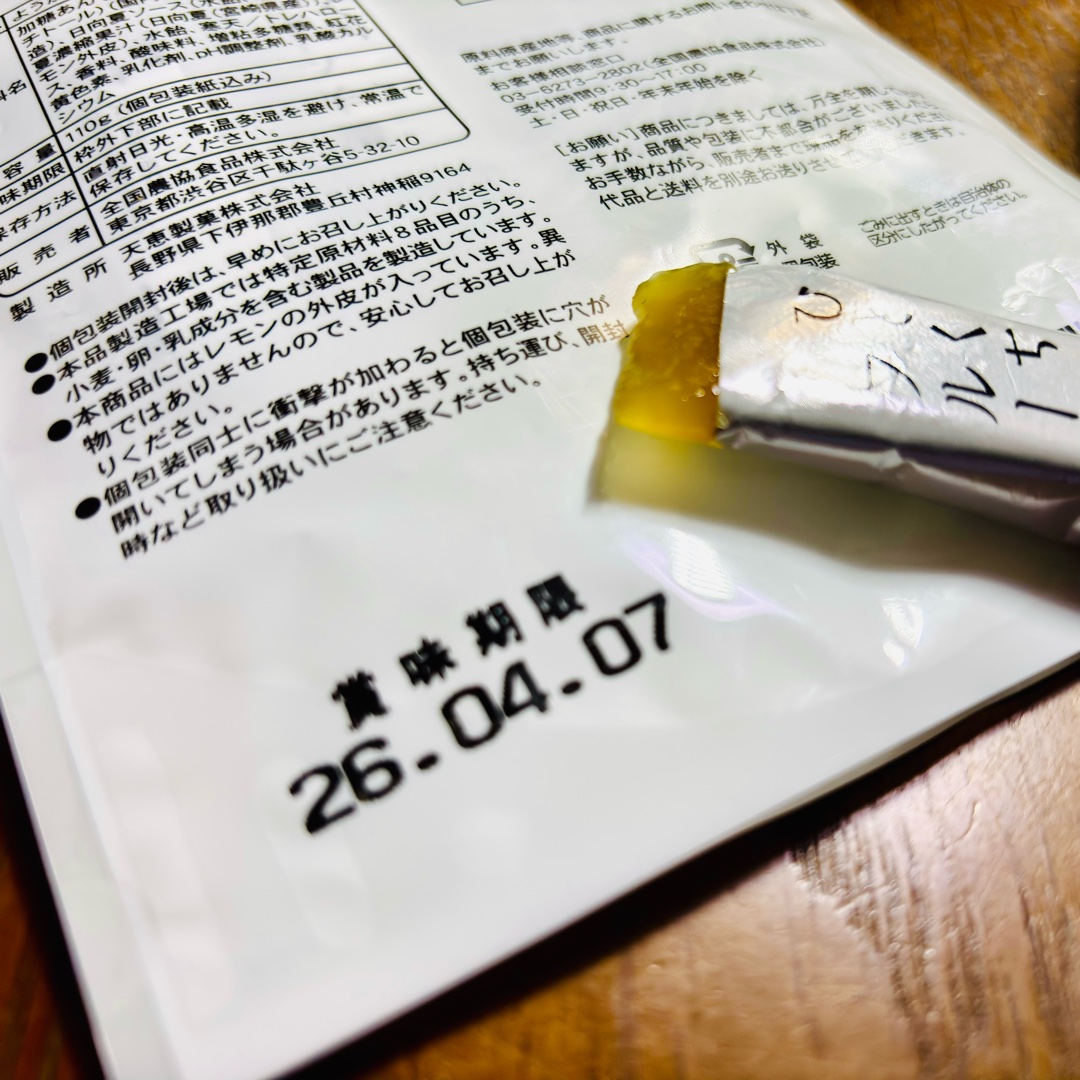 加糖あん
チト、日向夏
夏濃縮果汁
モン外皮)、水飴、寒天、トレハ
ス、香料、酸味料、増粘多糖類、紅花
黄色素、乳化剤、pH調整剤、乳酸カル
シウム
容量 110g(個包装紙込み)
味期限 枠外下部に記載
保存方法 直射日光・高温多湿を避け、常温で
保存してください。
販売者 全国農協食品株式会社
東京都渋谷区千駄ヶ谷5-32-10
製造所 天恵製菓株式会社
長野県下伊那郡豊丘村神稲9164
●個包装開封後は、早めにお召し上がりください。
●本品製造工場では特定原材料8品目のうち、
小麦・卵・乳成分を含む製品を製造しています。
●本商品にはレモンの外皮が入っています。異
物ではありませんので、安心してお召し上が
りください。
●個包装同士に衝撃が加わると個包装に穴が
開いてしまう場合があります。持ち運び、開封
時など取り扱いにご注意ください。
原料原産地等、商品に関するお問い合わせ
までお願いします。
お客様相談窓口
03-6273-2802(全国農協食品株式会社)
受付時間9:30~17:00
土・日・祝日・年末年始を除く
[お願い]商品につきましては、万全を期して
ますが、品質や包装に不都合がございました
お手数ながら、販売者まで
代品と送料を別途お送りさせ
ごみに出すときは自治体の
区分にしたがってください。
外袋
賞味期限
26.04.07